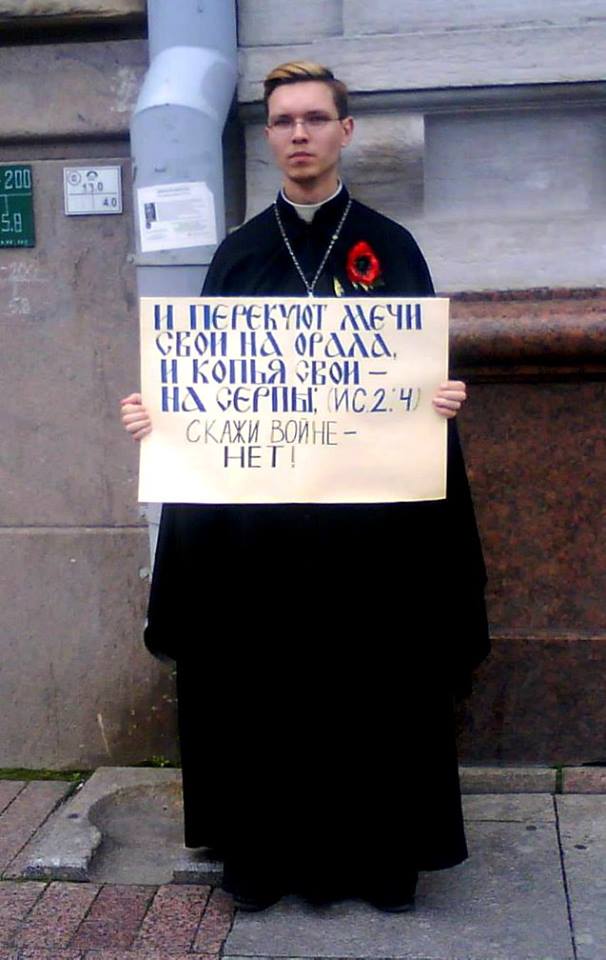 И ПЕРЕКУЮТ МЕЧИ
СВОИ НА ОРАЛА,
И КОПЬЯ СВОИ –
НА СЕРПЫ; (ИС.2:4)
СКАЖИ ВОЙНЕ –
НЕТ!
200
5.8
13.0
4.0